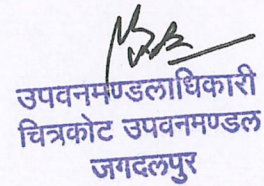 उपवनमण्डलाधिकारी
चित्रकोट उपवनमण्डल
जगदलपुर